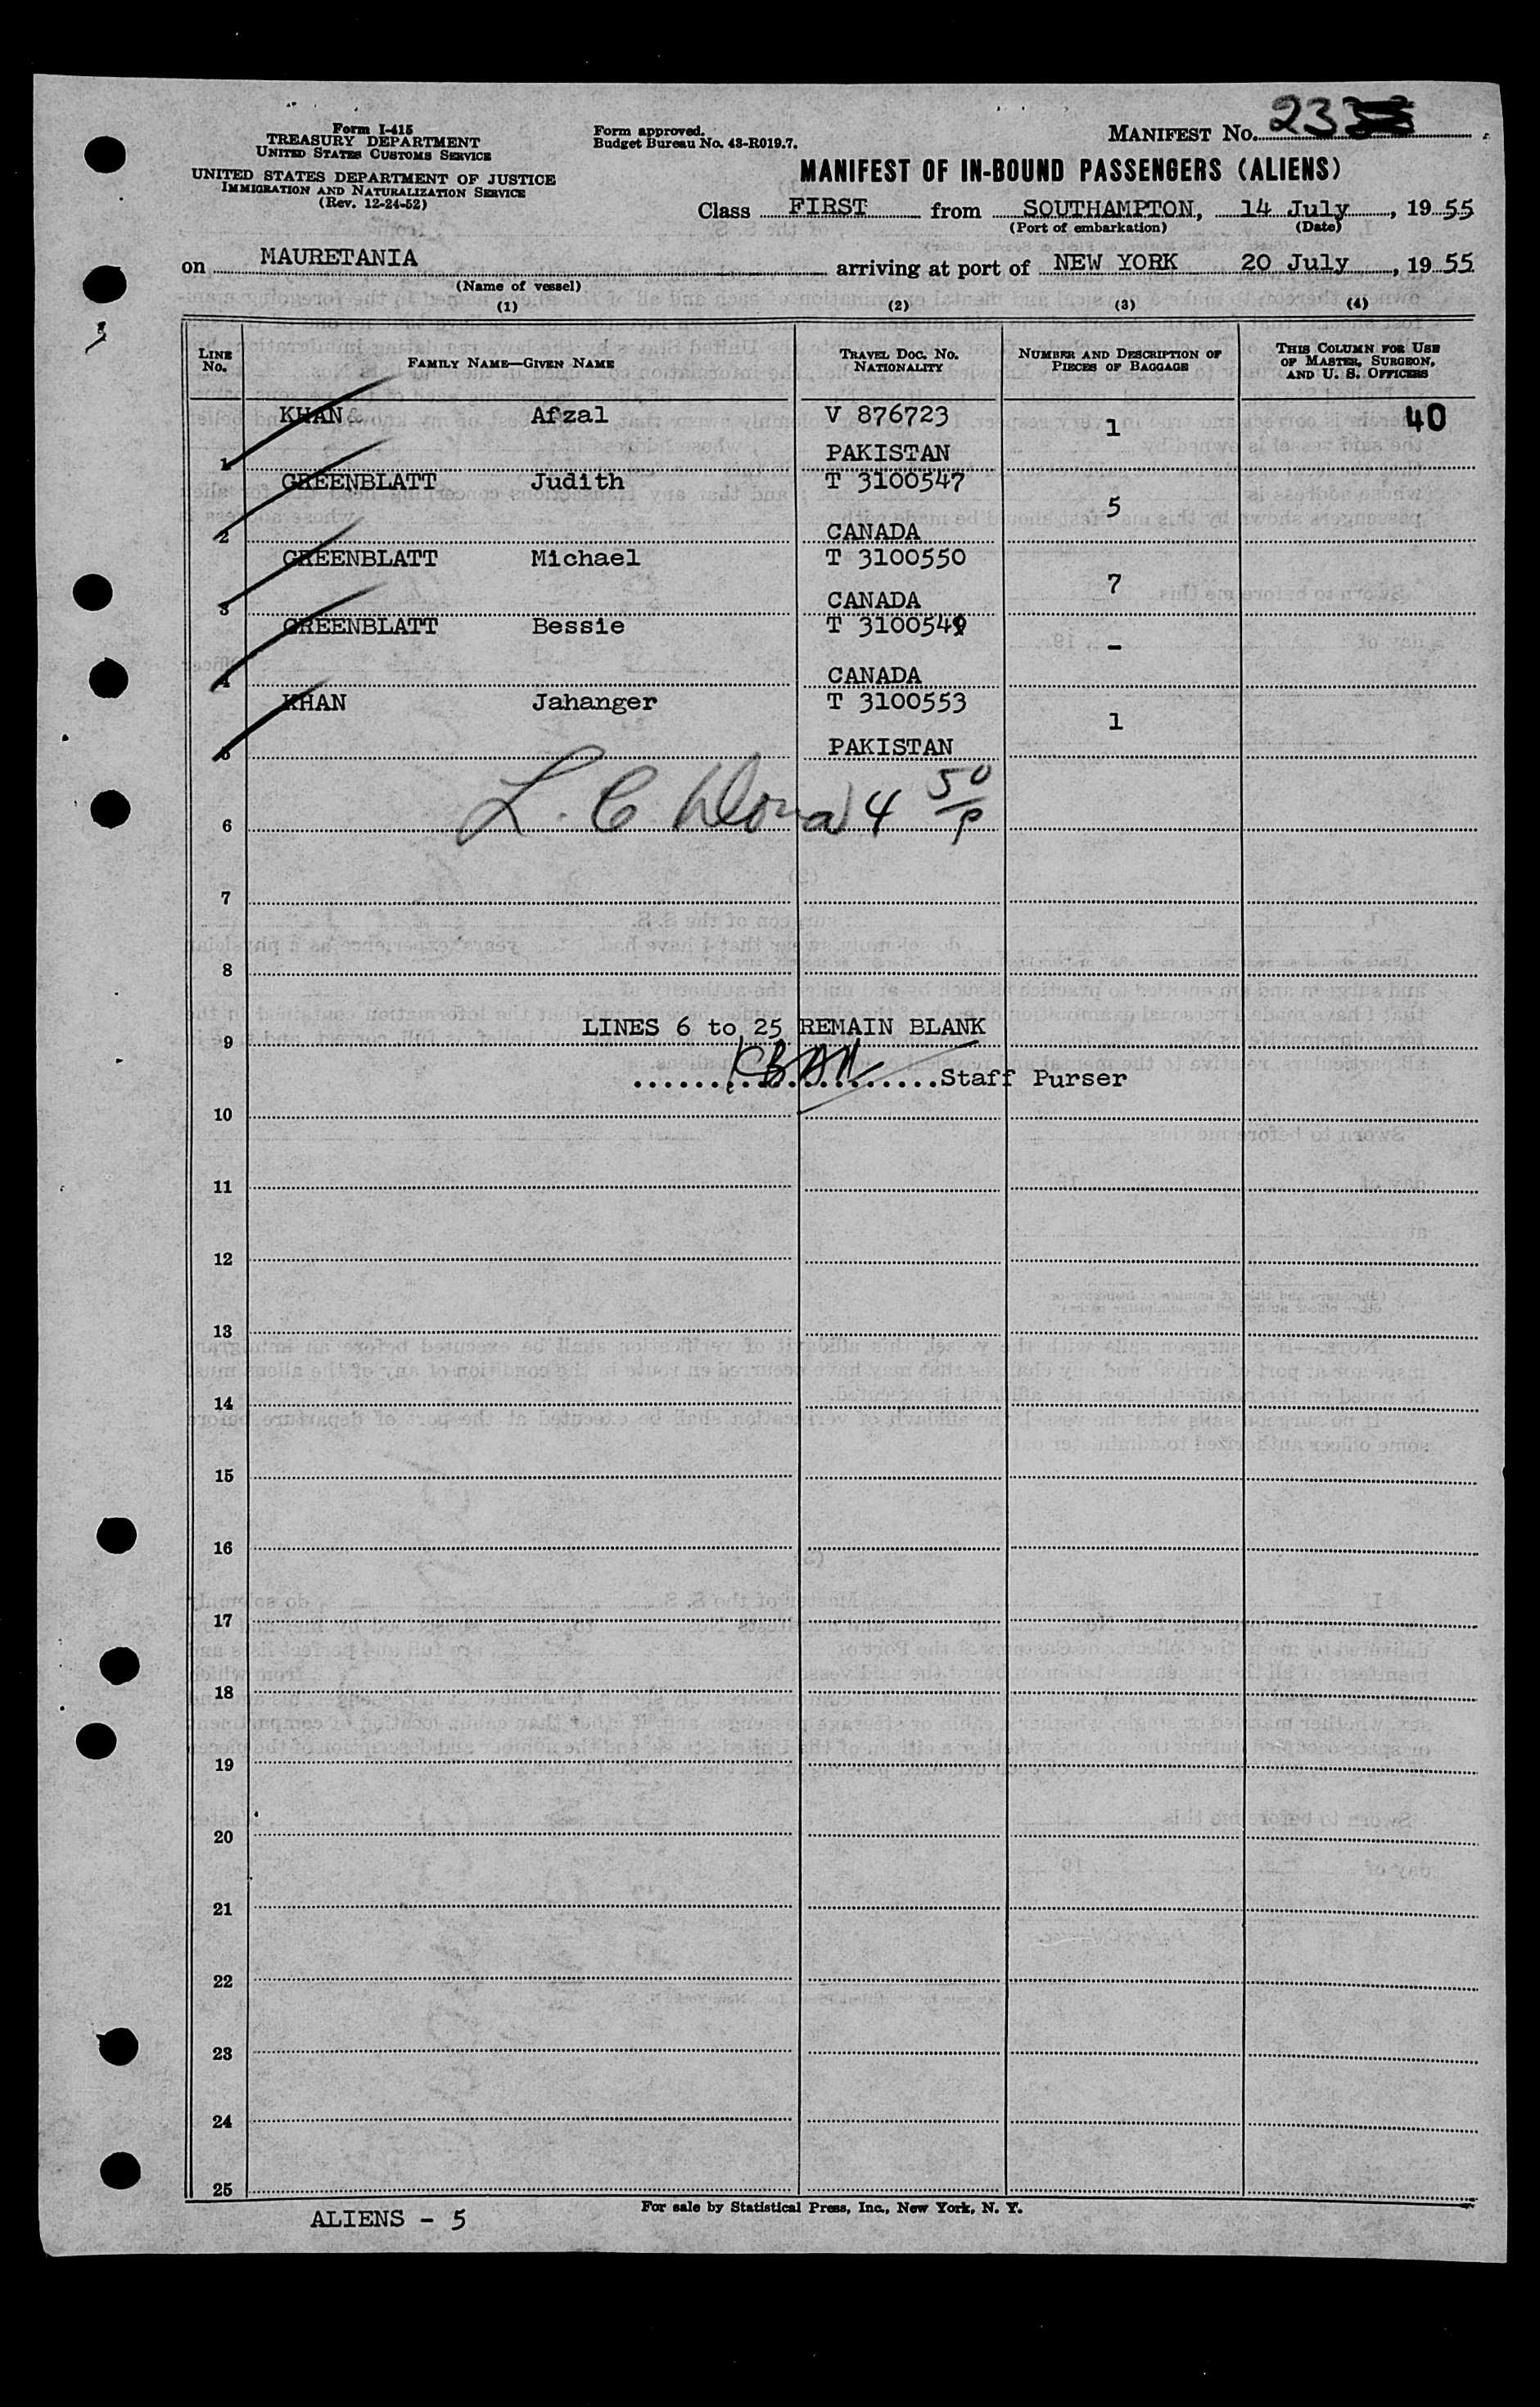 Form I-415
TREASURY DEPARTMENT
UNITED STATES CUSTOMS SERVICE
UNITED STATES DEPARTMENT OF JUSTICE
IMMIGRATION AND NATURALIZATION SERVICE
(Rev. 12-24-52)
Form approved.
Budget Bureau No. 43-R019.7.
MANIFEST No. 23
MANIFEST OF IN-BOUND PASSENGERS (ALIENS)
Class FIRST from SOUTHAMPTON, 14 July, 1955
(Port of embarkation) (Date)
on MAURETANIA arriving at port of NEW YORK 20 July, 1955
(Name of vessel)
(1) (2) (3) (4)
LINE No. FAMILY NAME—GIVEN NAME TRAVEL DOC. NO. NATIONALITY NUMBER AND DESCRIPTION OF PIECES OF BAGGAGE THIS COLUMN FOR USE OF MASTER, SURGEON, AND U. S. OFFICERS
1 KHAN Afzal V 876723 1 40
PAKISTAN
2 GREENBLATT Judith T 3100547 5
CANADA
3 GREENBLATT Michael T 3100550 7
CANADA
4 GREENBLATT Bessie T 3100549 -
CANADA
5 KHAN Jahanger T 3100553 1
PAKISTAN
L. C. 4 50/P
6
7
8
LINES 6 to 25 REMAIN BLANK
9
Staff Purser
10
11
12
13
14
15
16
17
18
19
20
21
22
23
24
25
For sale by Statistical Press, Inc., New York, N. Y.
ALIENS - 5